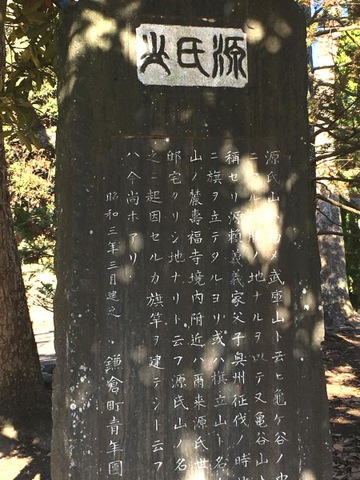 源氏山
源氏山ハ初メ武庫山ト云ヒ亀ケ谷ノ中
ニ ノ地ナルヲ以テ又亀谷山ト
稱セリ源頼義義家父子奥州征伐ノ時
ニ旗ヲ立テタルヨリ或ハ旗立山ト名
山ノ麓壽福寺境内附近ハ爾来源氏世
邸宅タリシ地ナリト云フ源氏山ノ名
之ニ起因セルカ旗竿ヲ建テシト云フ
ハ今尚ホアリ
昭和三年三月建之 鎌倉町青年團